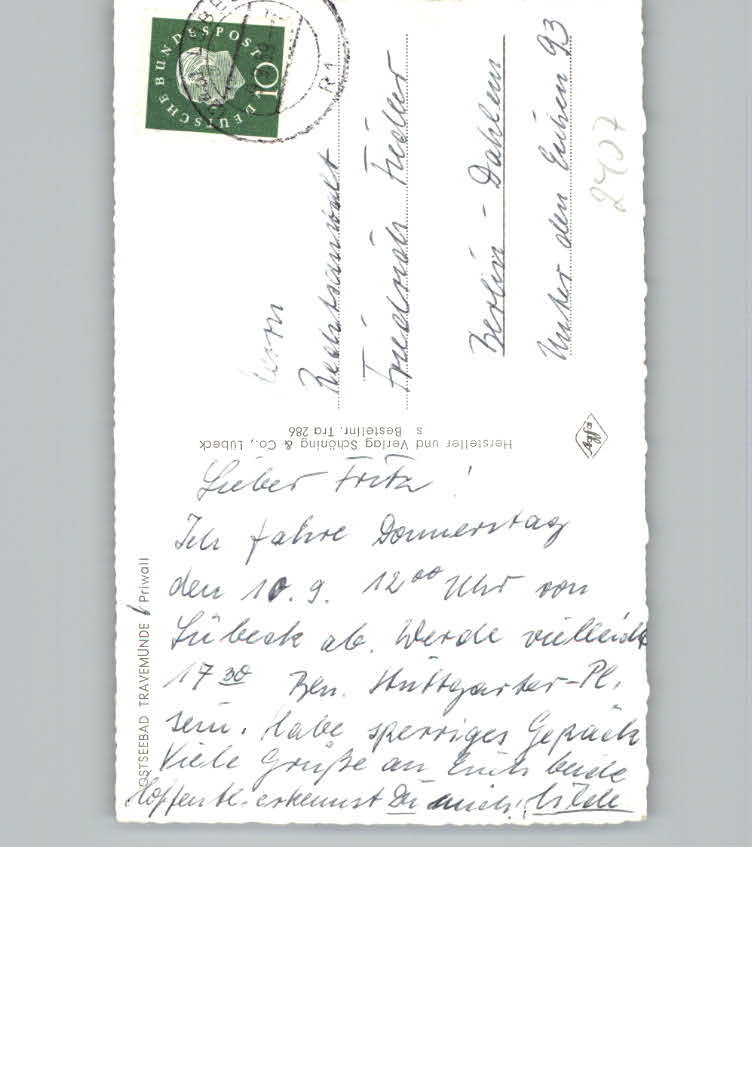 Lieber Fritz!
Ich fahre Donnerstag
den 10. 9. 12 00 Uhr von
Lübeck ab. Werde vielleicht
17 30 Bln. Stuttgarter-Pl.
sein. Habe sperriges Gepäck
Viele Grüße an Euch beide
Hoffentl. erkennst Du mich!
OSTSEEBAD TRAVEMÜNDE / Priwall
Hersteller und Verlag Schöning & Co., Lübeck
s Bestellnr. Tra 286
Agfa
Herrn
Rechtsanwalt
Friedrich Fiedler
Berlin - Dahlem
Unter den Eichen 93
2407
DEUTSCHE BUNDESPOST
10